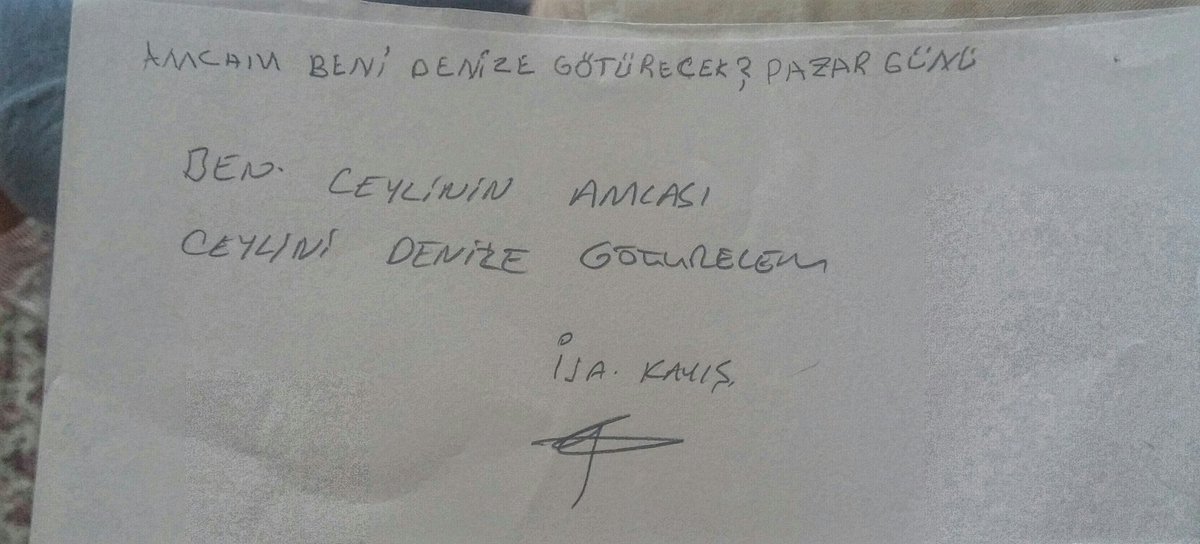 AMCAIM BENİ DENİZE GÖTÜRECEK? PAZAR GÜNÜ
BEN. CEYLİNİN AMCASI
CEYLINİ DENİZE GÖTURECEM
İSA. KAYIŞ.